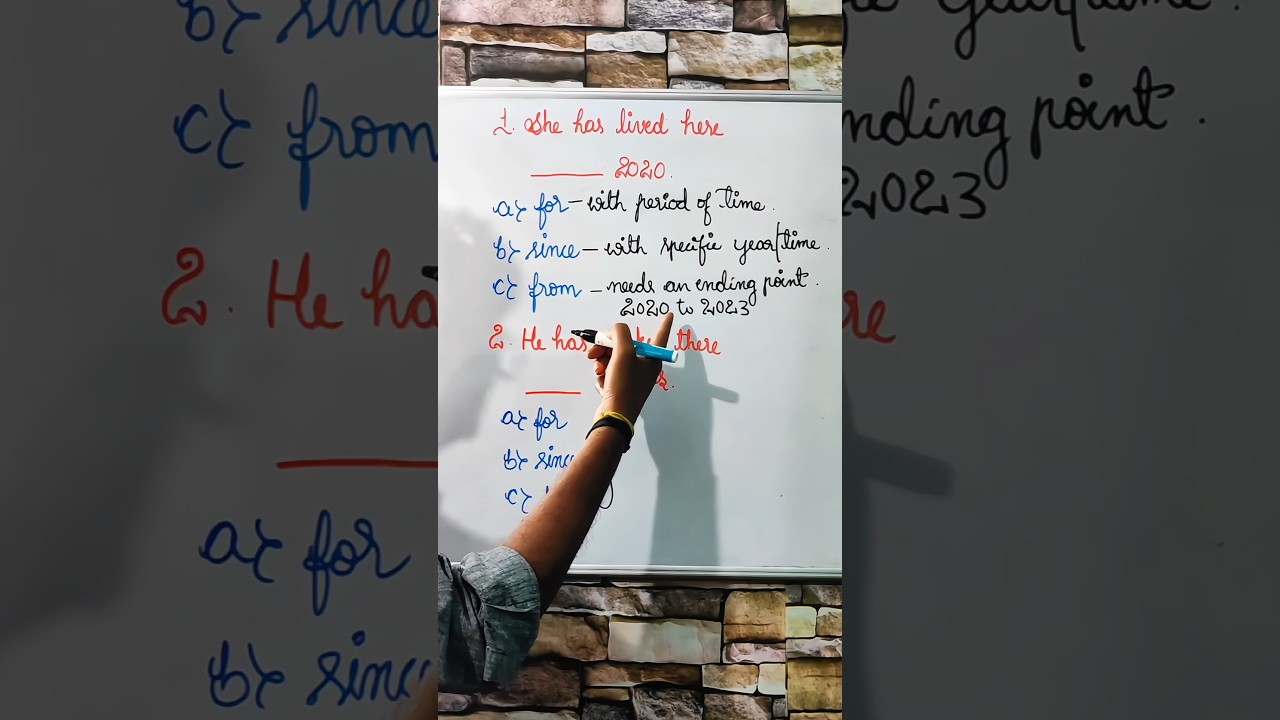 1. She has lived here
______ 2020.
a) for – with period of time.
b) since – with specific year/time.
c) from – needs an ending point.
2020 to 2023
2. He has there
______
a) for
b) sinc
c)